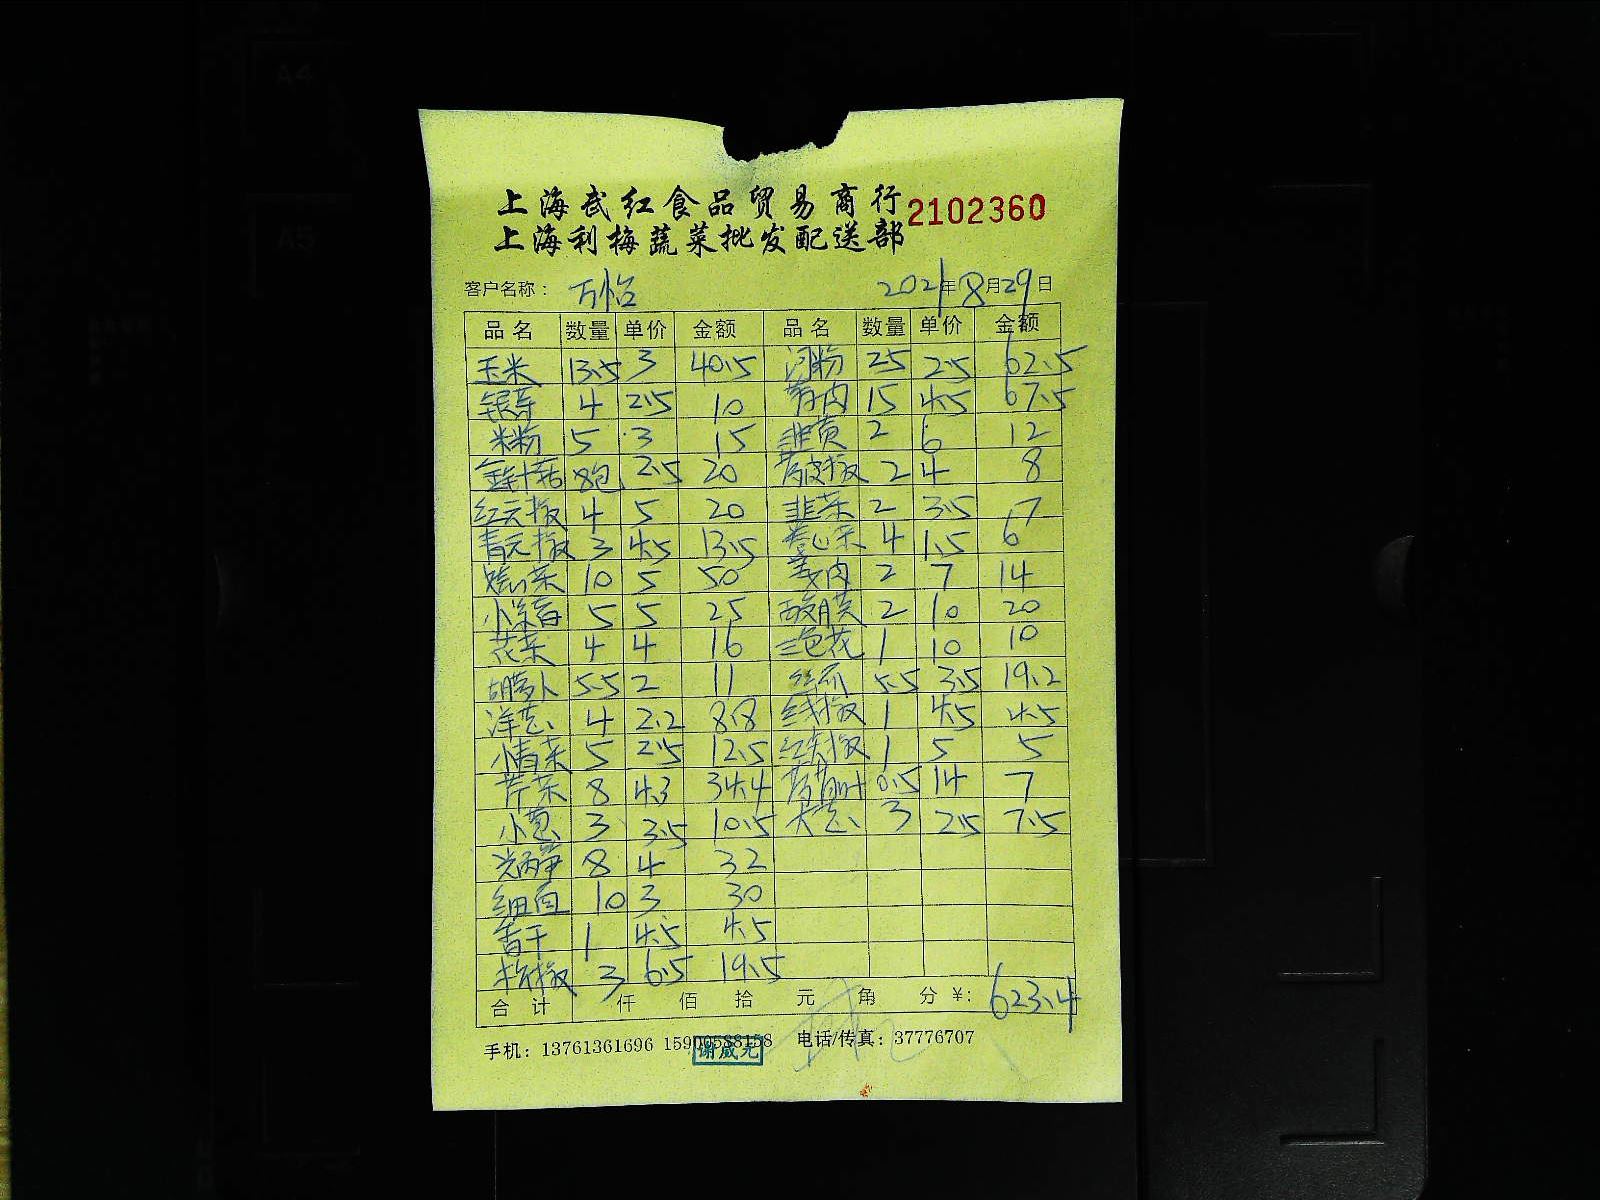 上海武红食品贸易商行
2102360
上海利梅蔬菜批发配送部
客户名称： 万怡 2021年8月29日
品名 数量 单价 金额 品名 数量 单价 金额
玉米 13.5 3 40.5 河粉 25 2.5 62.5
银芽 4 2.5 10 15 4.5 67.5
米粉 5 3 15 韭黄 2 6 12
金针菇 8包 2.5 20 2 4 8
红元椒 4 5 20 韭菜 2 3.5 7
青元椒 3 4.5 13.5 卷心菜 4 1.5 6
10 5 50 姜肉 2 7 14
5 5 25 2 10 20
花菜 4 4 16 三色花 1 10 10
胡萝卜 5.5 2 11 丝瓜 5.5 3.5 19.2
洋葱 4 2.2 8.8 线椒 1 4.5 4.5
小青菜 5 2.5 12.5 红尖椒 1 5 5
芹菜 8 4.3 34.4 0.5 14 7
小葱 3 3.5 10.5 大葱 3 2.5 7.5
8 4 32
细面 10 3 30
香干 1 4.5 4.5
杭椒 3 6.5 19.5
合计 仟 佰 拾 元 角 分 ¥: 623.4
手机：13761361696 15900588158 电话/传真：37776707
谢咸元